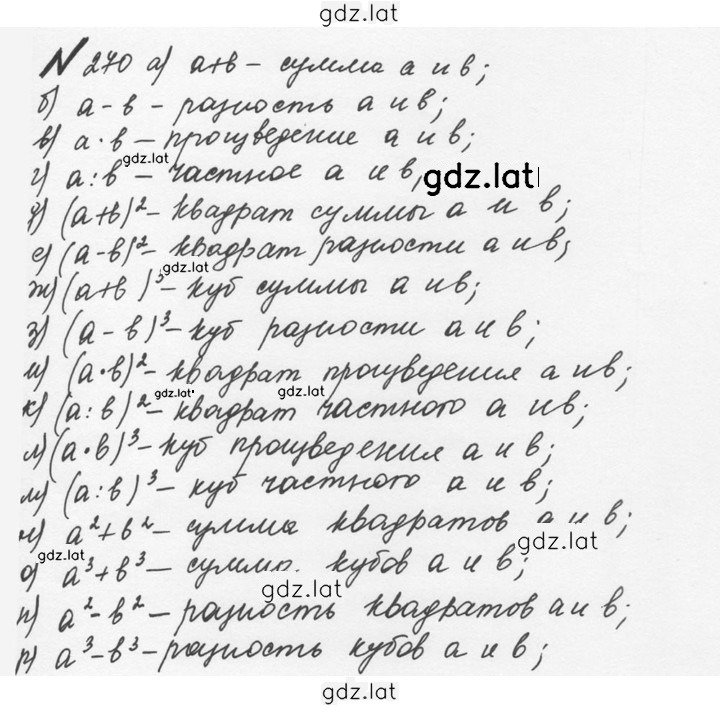 gdz.lat
N 270 а) a+b – сумма a и b;
б) a - b – разность a и b;
в) a · b – произведение a и b;
gdz.lat
г) a : b – частное a и b,
gdz.lat
д) (a+b)² – квадрат суммы a и b;
е) (a-b)² – квадрат разности a и b;
gdz.lat
ж) (a+b)³ – куб суммы a и b;
з) (a - b)³ – куб разности a и b;
и) (a·b)² – квадрат произведения a и b;
gdz.lat gdz.lat
к) (a : b)² – квадрат частного a и b;
л) (a·b)³ – куб произведения a и b;
м) (a : b)³ – куб частного a и b;
н) a²+b² – сумма квадратов a и b;
gdz.lat gdz.lat
о) a³+b³ – сумма кубов a и b;
gdz.lat
п) a²-b² – разность квадратов a и b;
р) a³-b³ – разность кубов a и b;
gdz.lat